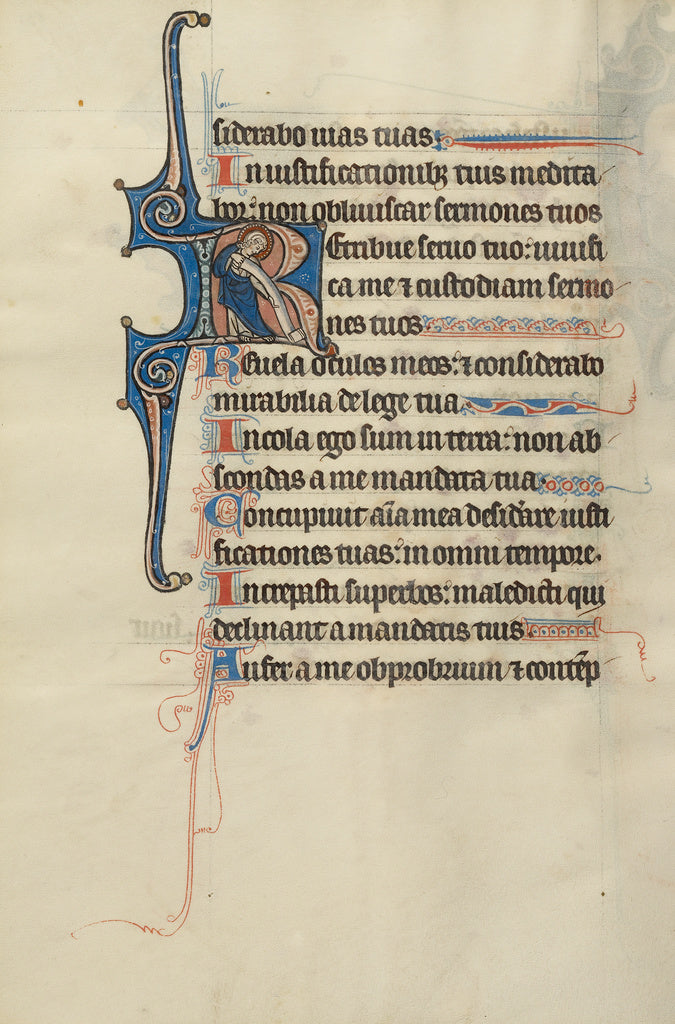 siderabo uias tuas.
In iustificationibꝫ tuis medita
bor: non obliuiscar sermones tuos
Retribue seruo tuo: uiuifi
ca me ⁊ custodiam sermo
nes tuos
Reuela oculos meos: ⁊ considerabo
mirabilia de lege tua.
Incola ego sum in terra: non ab
scondas a me mandata tua.
Concupiuit aīa mea desid̾are iusti
ficationes tuas: in omni tempore.
Increpasti superbos: maledicti qui
declinant a mandatis tuis
Aufer a me obprobrium ⁊ contēp